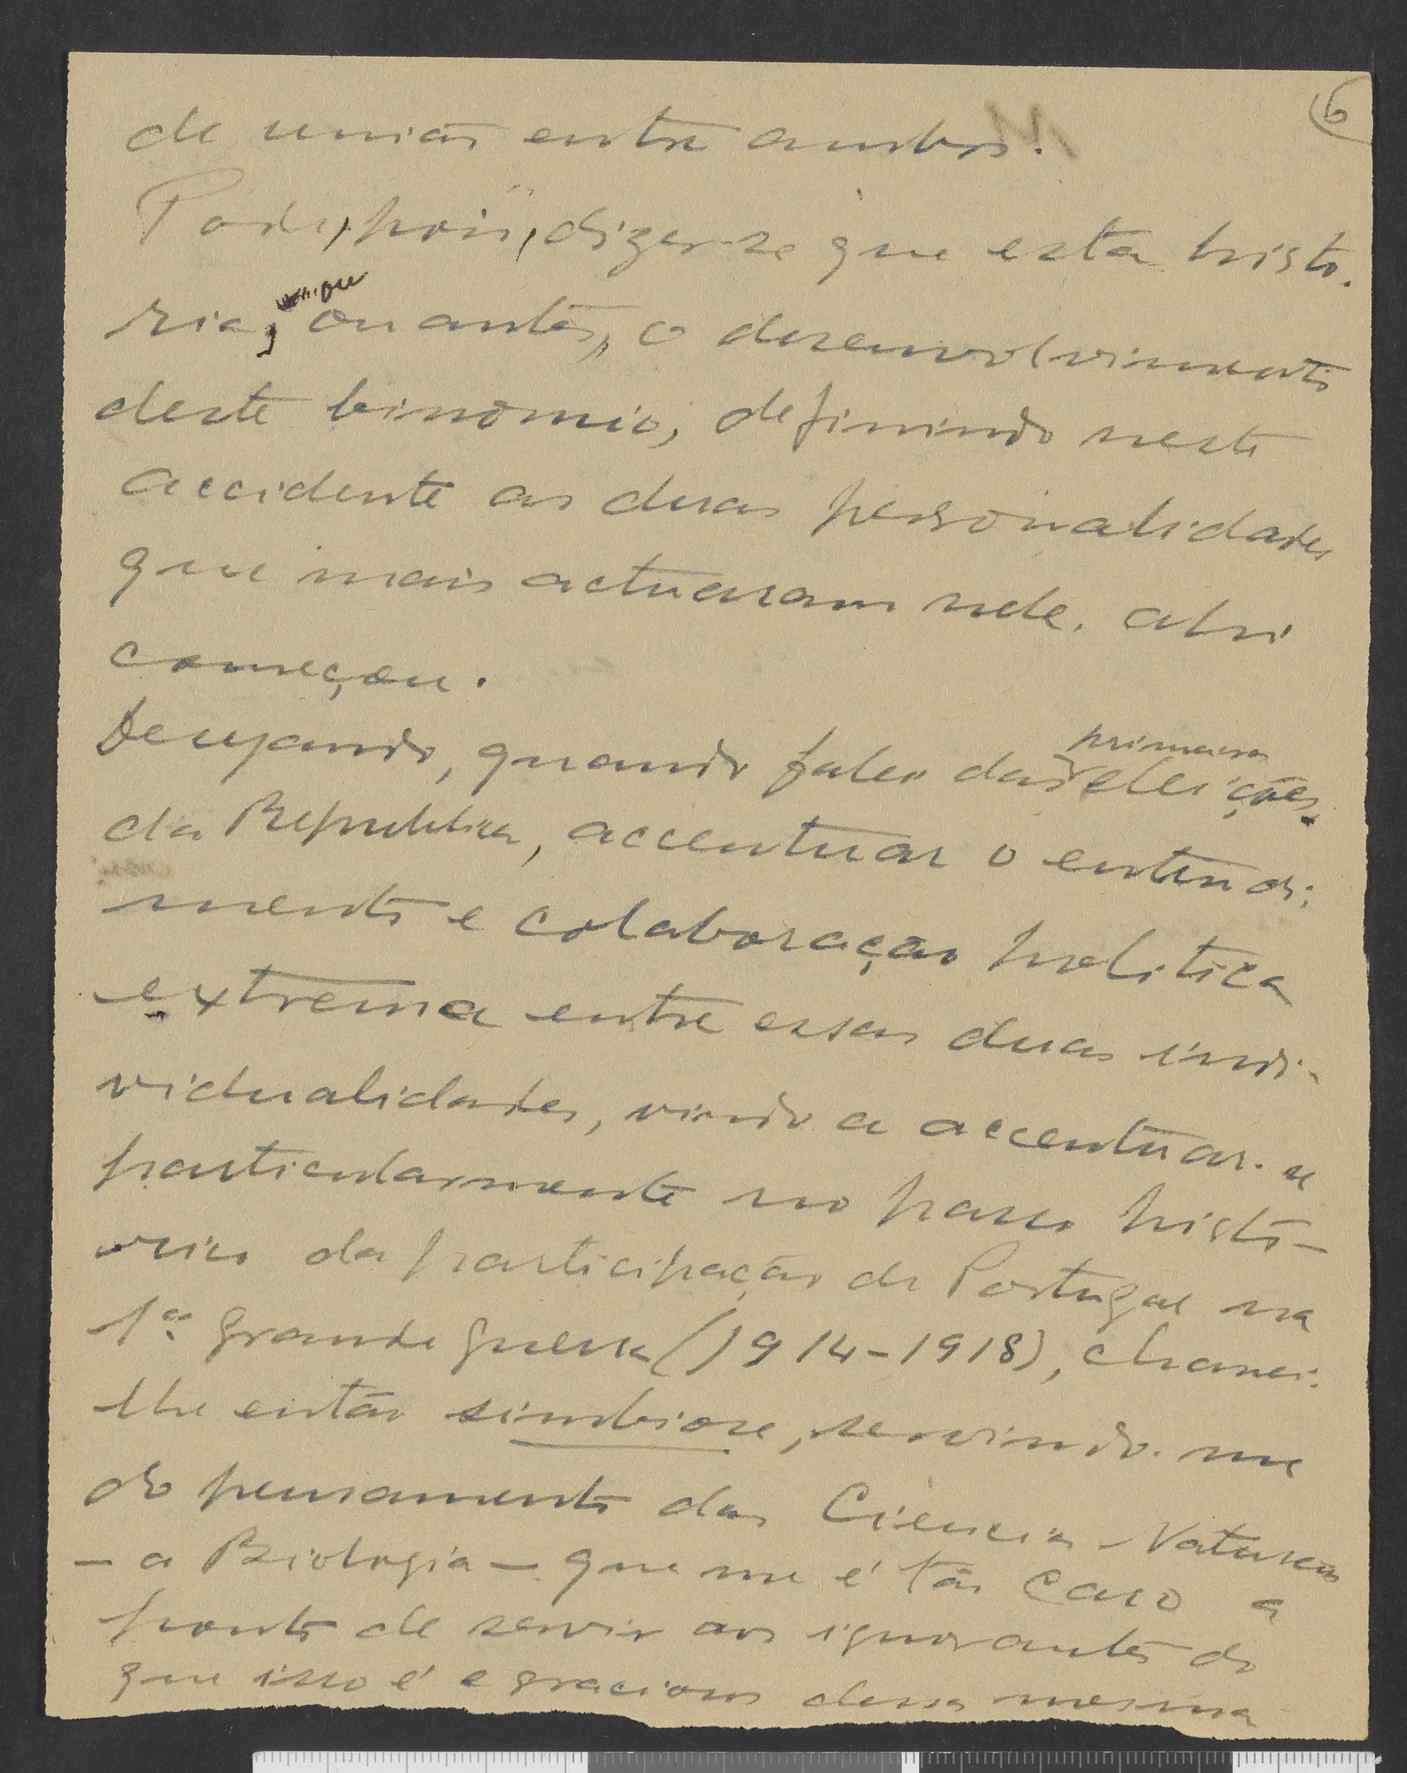 6
de união entre ambos.
Pode, pois, dizer-se que esta histo-
ria, ou antes, o desenvolvimento
deste binomio, definindo neste
accidente as duas personalidades
que mais actuaram nele. ahi
começou.
Desejando, quando falei das primeiras eleições
da Republica, accentuar o entendi-
mento e colaboração politica
extrema entre essas duas indi-
vidualidades, vindo a accentuar-se
particularmente no passo histó-
rico da participação de Portugal na
1ª grande guerra (1914-1918), chamei-
lhe então simbiose, servindo-me
do pensamento das Ciencias Naturais
- a Biologia - que me é tão caro a
ponto de servir aos ignorantes do
que isso é e graciosos dessa mesma